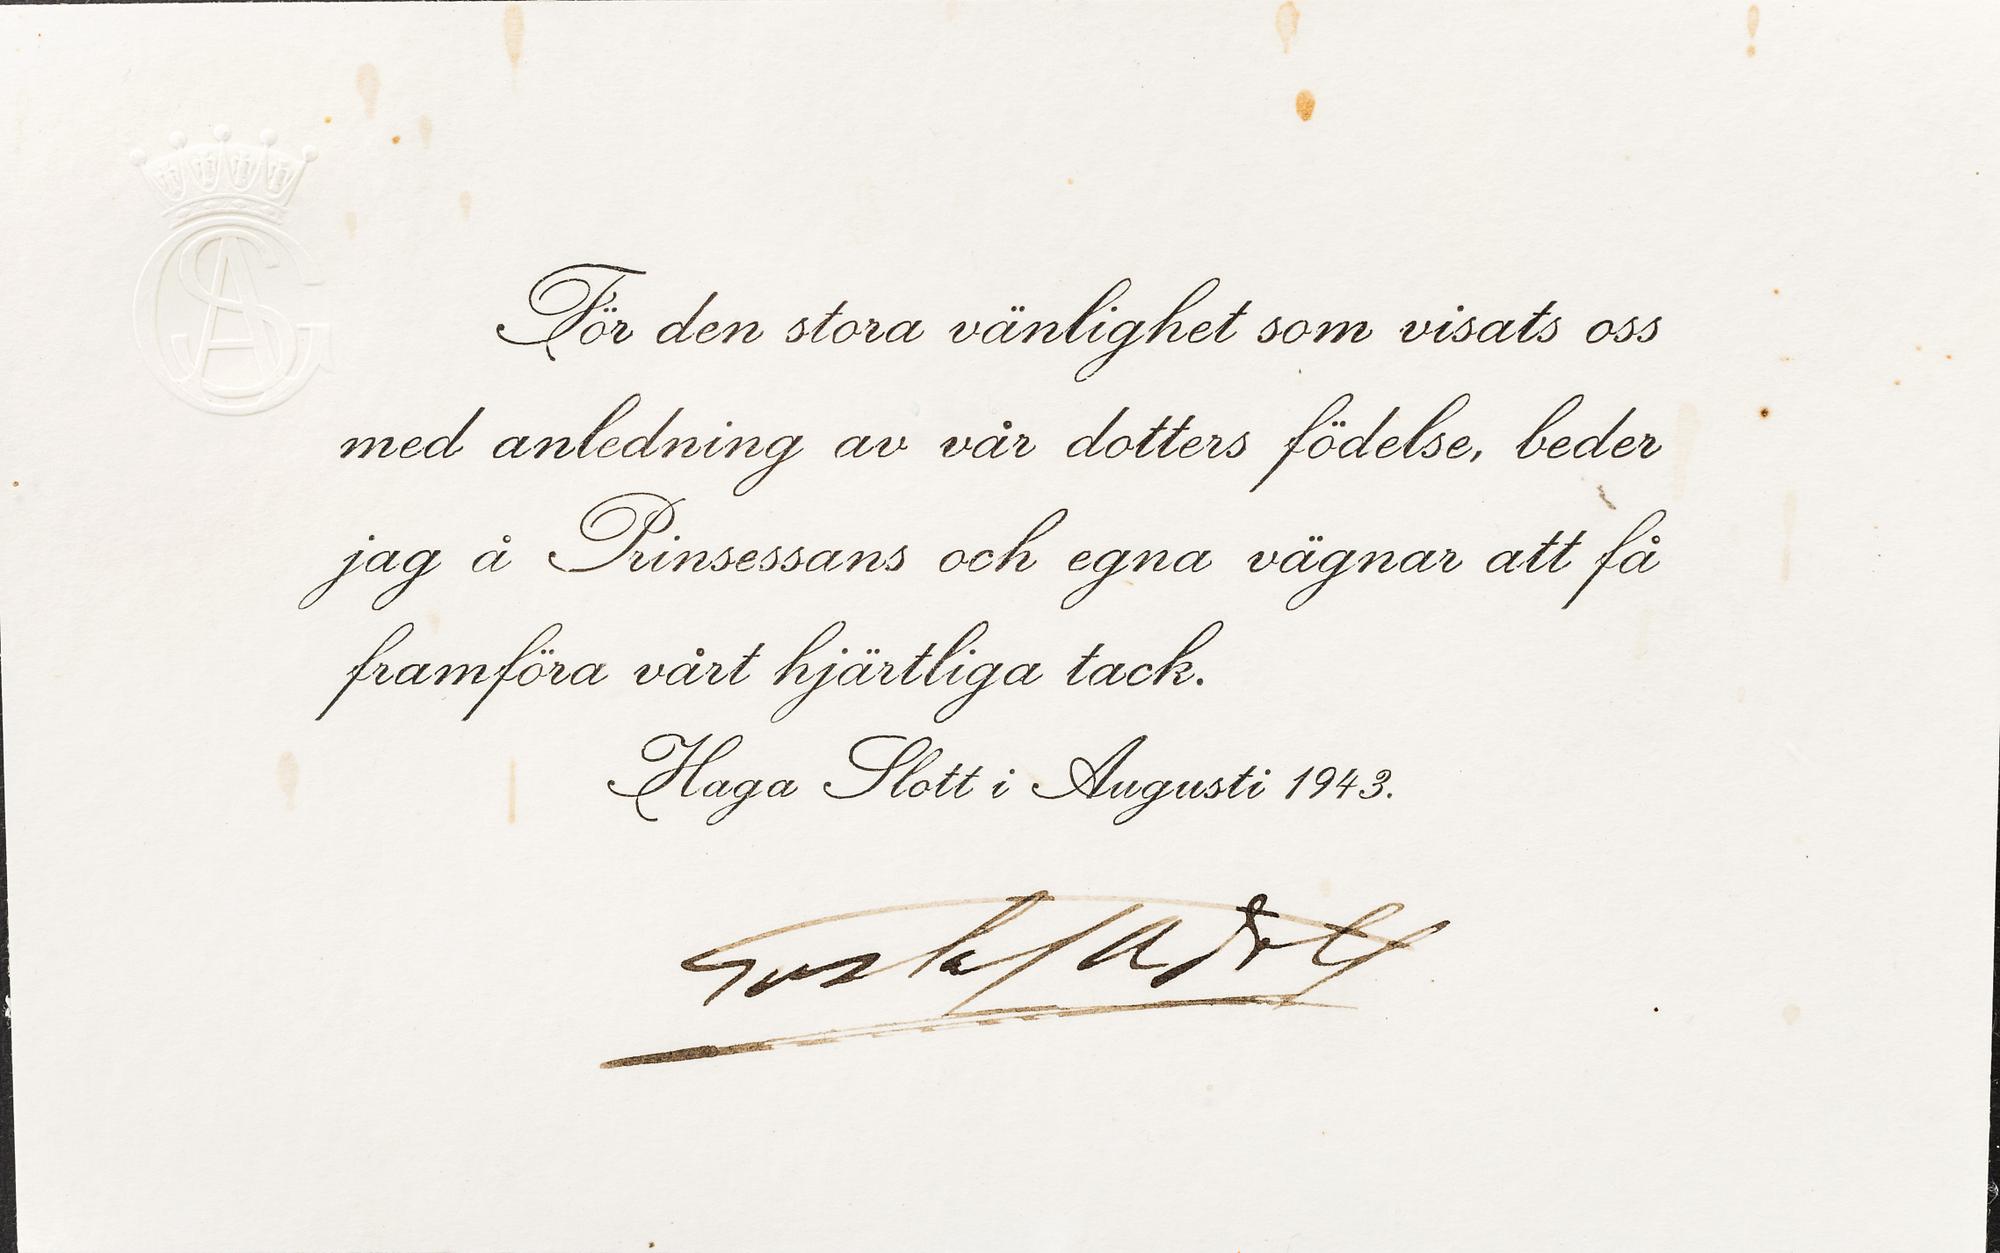 GAS
För den stora vänlighet som visats oss
med anledning av vår dotters födelse, beder
jag å Prinsessans och egna vägnar att få
framföra vårt hjärtliga tack.
Haga Slott i Augusti 1943.
Gustaf Adolf